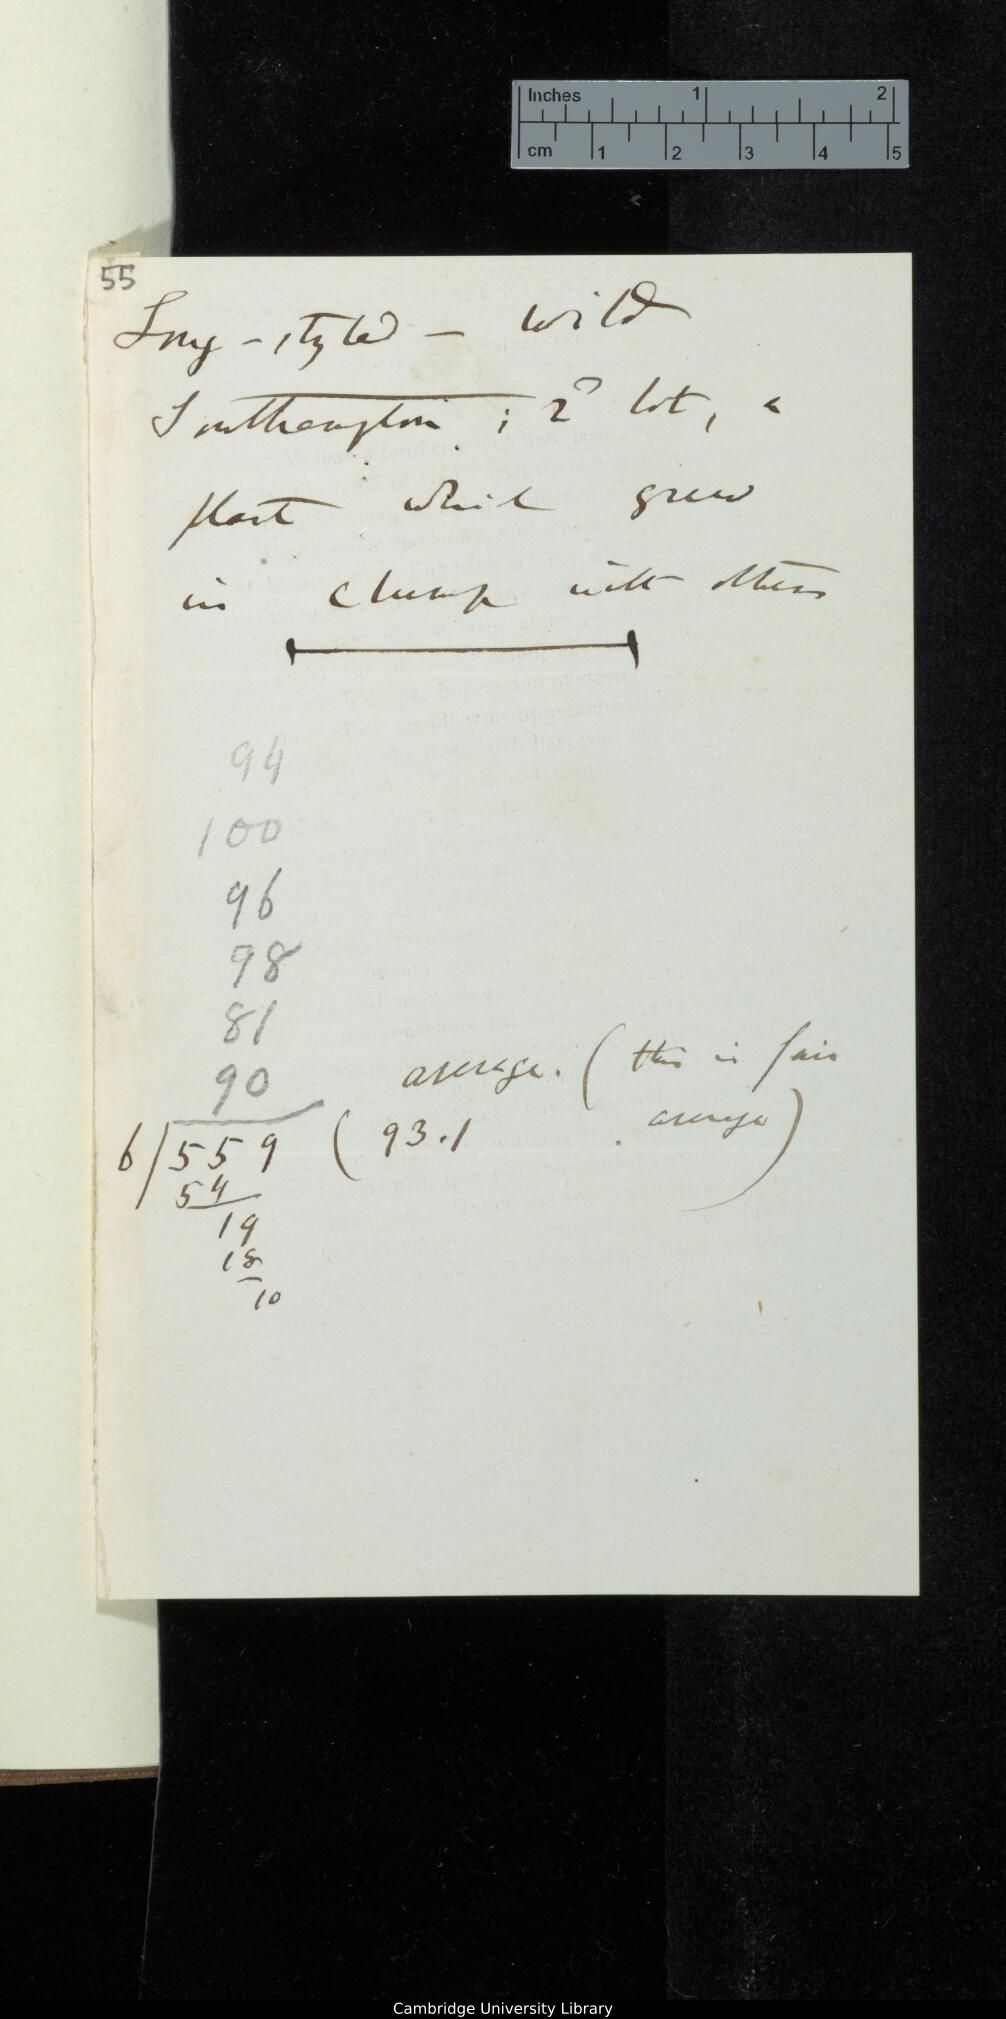 Inches 1 2
cm 1 2 3 4 5
55
Long-styled — wild
Southampton; 2d lot, a
plant which grew
in clump with others
94
100
96
98
81
90
average. (this is fair
average)
6/559 (93.1
54
19
18
10
Cambridge University Library